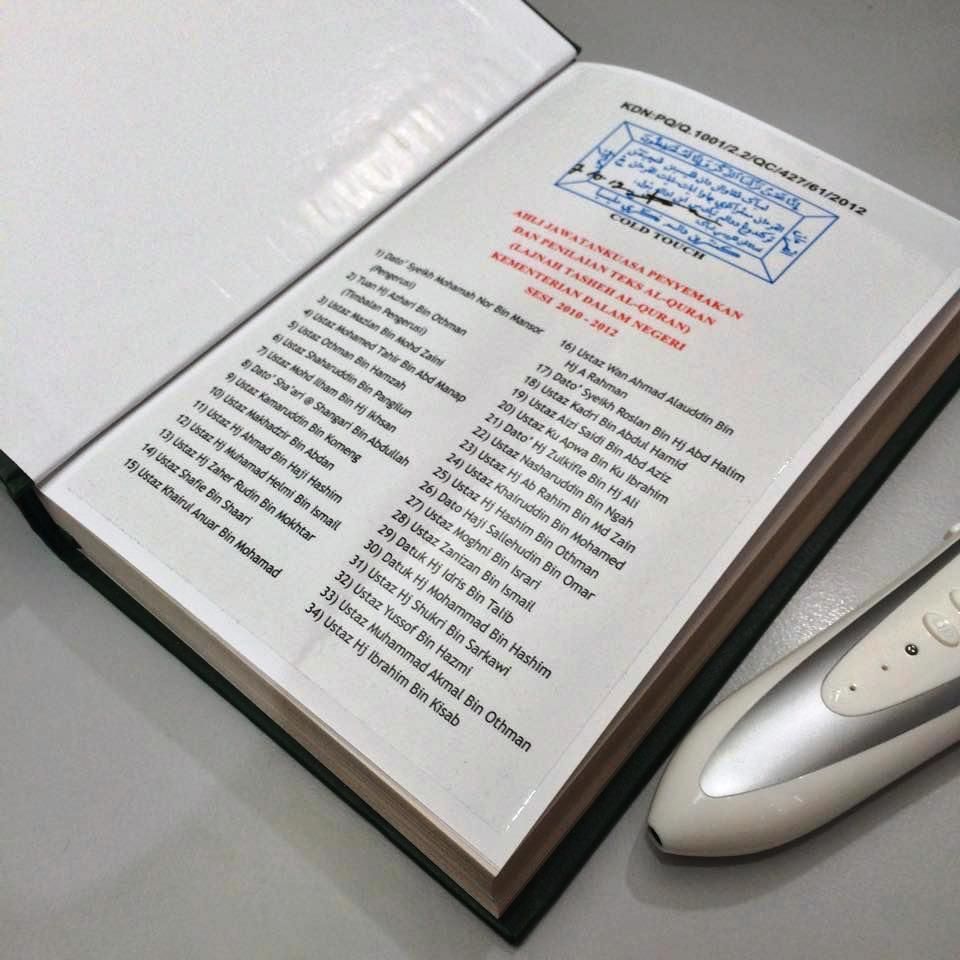 KDN:PQ/Q.1001/2.2/QC/427/61/2012
إنا نحن نزلنا الذكر وإنا له لحافظون
COLD TOUCH
AHLI JAWATANKUASA PENYEMAKAN
DAN PENILAIAN TEKS AL-QURAN
(LAJNAH TASHEH AL-QURAN)
KEMENTERIAN DALAM NEGERI
SESI 2010 - 2012
1) Dato' Syeikh Mohamah Nor Bin Mansor
(Pengerusi)
2) Tuan Hj Azhari Bin Othman
(Timbalan Pengerusi)
3) Ustaz Mazlan Bin Mohd Zaini
4) Ustaz Mohamed Tahir Bin Abd Manap
5) Ustaz Othman Bin Hamzah
6) Ustaz Shaharuddin Bin Pangilun
7) Ustaz Mohd Ilham Bin Hj Ikhsan
8) Dato' Sha'ari @ Shangari Bin Abdullah
9) Ustaz Kamaruddin Bin Komeng
10) Ustaz Makhadzir Bin Abdan
11) Ustaz Hj Ahmad Bin Haji Hashim
12) Ustaz Hj Muhamad Helmi Bin Ismail
13) Ustaz Hj Zaher Rudin Bin Mokhtar
14) Ustaz Shafie Bin Shaari
15) Ustaz Khairul Anuar Bin Mohamad
16) Ustaz Wan Ahmad Alauddin Bin
Hj A Rahman
17) Dato' Syeikh Roslan Bin Hj Abd Halim
18) Ustaz Kadri Bin Abdul Hamid
19) Ustaz Aizi Saidi Bin Abd Aziz
20) Ustaz Ku Apwa Bin Ku Ibrahim
21) Dato' Hj Zulkifle Bin Hj Ali
22) Ustaz Nasharuddin Bin Ngah
23) Ustaz Hj Ab Rahim Bin Md Zain
24) Ustaz Khairuddin Bin Mohamed
25) Ustaz Hj Hashim Bin Othman
26) Dato Haji Sallehudin Bin Omar
27) Ustaz Moghni Bin Israri
28) Ustaz Zanizan Bin Ismail
29) Datuk Hj Idris Bin Talib
30) Datuk Hj Mohammad Bin Hashim
31) Ustaz Hj Shukri Bin Sarkawi
32) Ustaz Yussof Bin Hazmi
33) Ustaz Muhammad Akmal Bin Othman
34) Ustaz Hj Ibrahim Bin Kisab